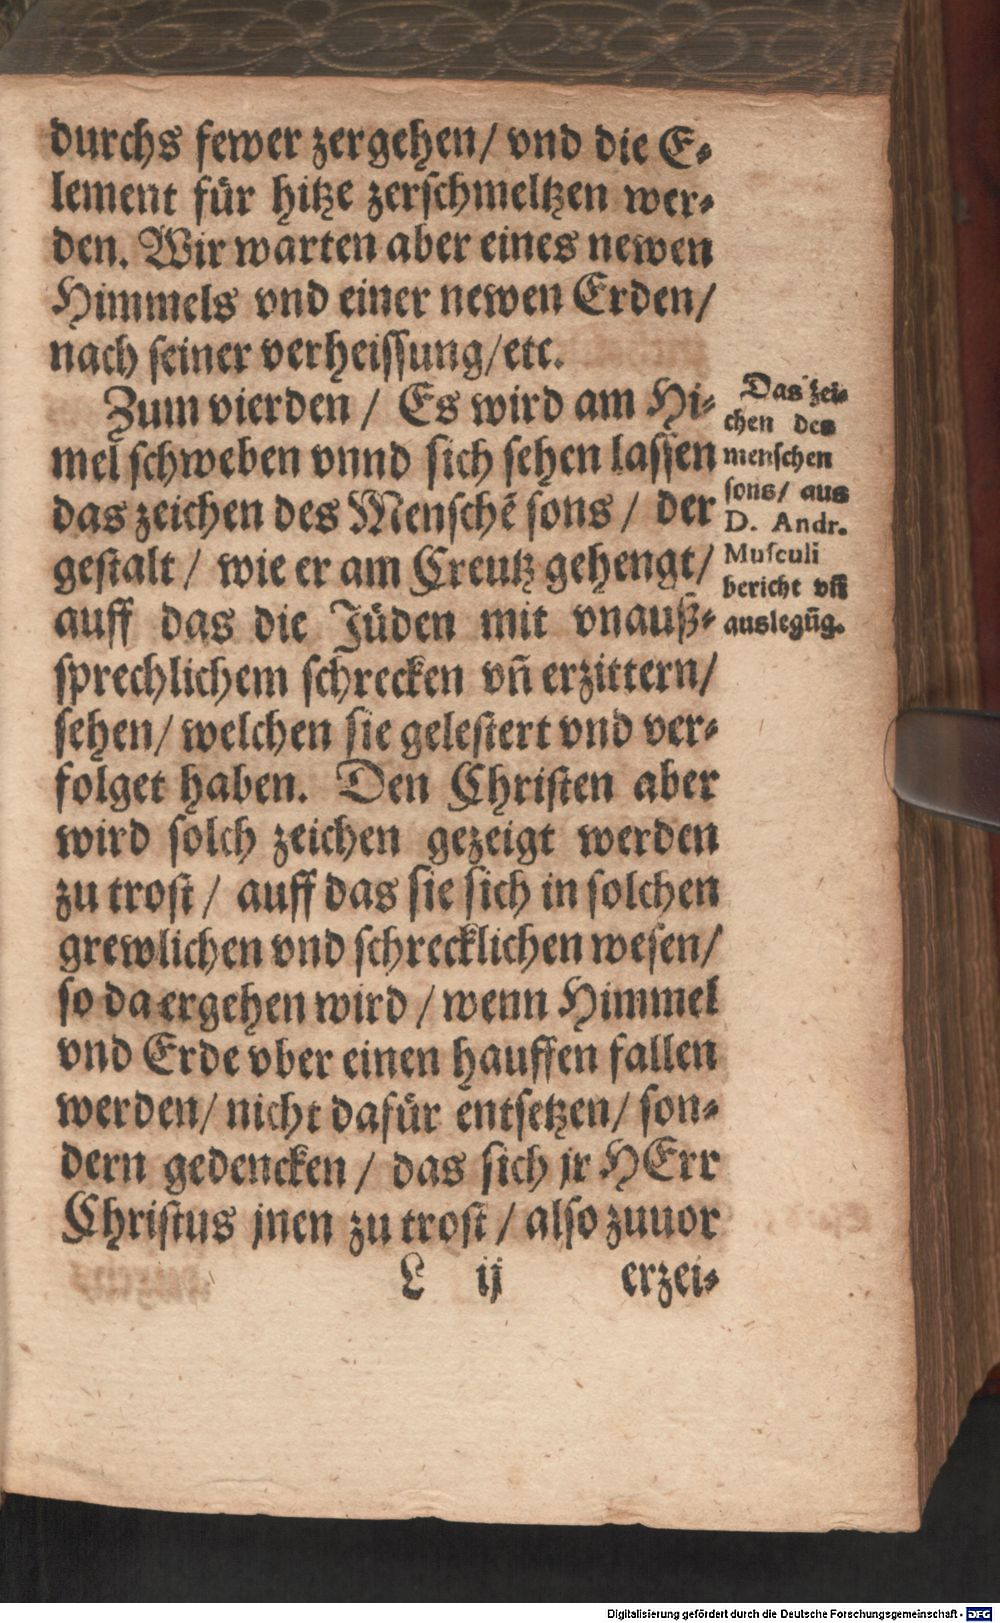 durchs fewer zergehen/ vnd die E-
lement für hitze zerschmeltzen wer-
den. Wir warten aber eines newen
Himmels vnd einer newen Erden/
nach seiner verheissung/etc.
Zum vierden / Es wird am Hi-
mel schweben vnnd sich sehen lassen
das zeichen des Menschẽ sons / der
gestalt / wie er am Creutz gehengt/
auff das die Jüden mit vnauß-
sprechlichem schrecken vñ erzittern/
sehen/ welchen sie gelestert vnd ver-
folget haben. Den Christen aber
wird solch zeichen gezeigt werden
zu trost / auff das sie sich in solchen
grewlichen vnd schrecklichen wesen/
so da ergehen wird / wenn Himmel
vnd Erde vber einen hauffen fallen
werden/ nicht dafür entsetzen/ son-
dern gedencken / das sich jr HErr
Christus jnen zu trost / also zuuor
L ij erzei-
Das zei-
chen des
menschen
sons/ aus
D. Andr.
Musculi
bericht vñ
auslegũg.
Digitalisierung gefördert durch die Deutsche Forschungsgemeinschaft - DFG